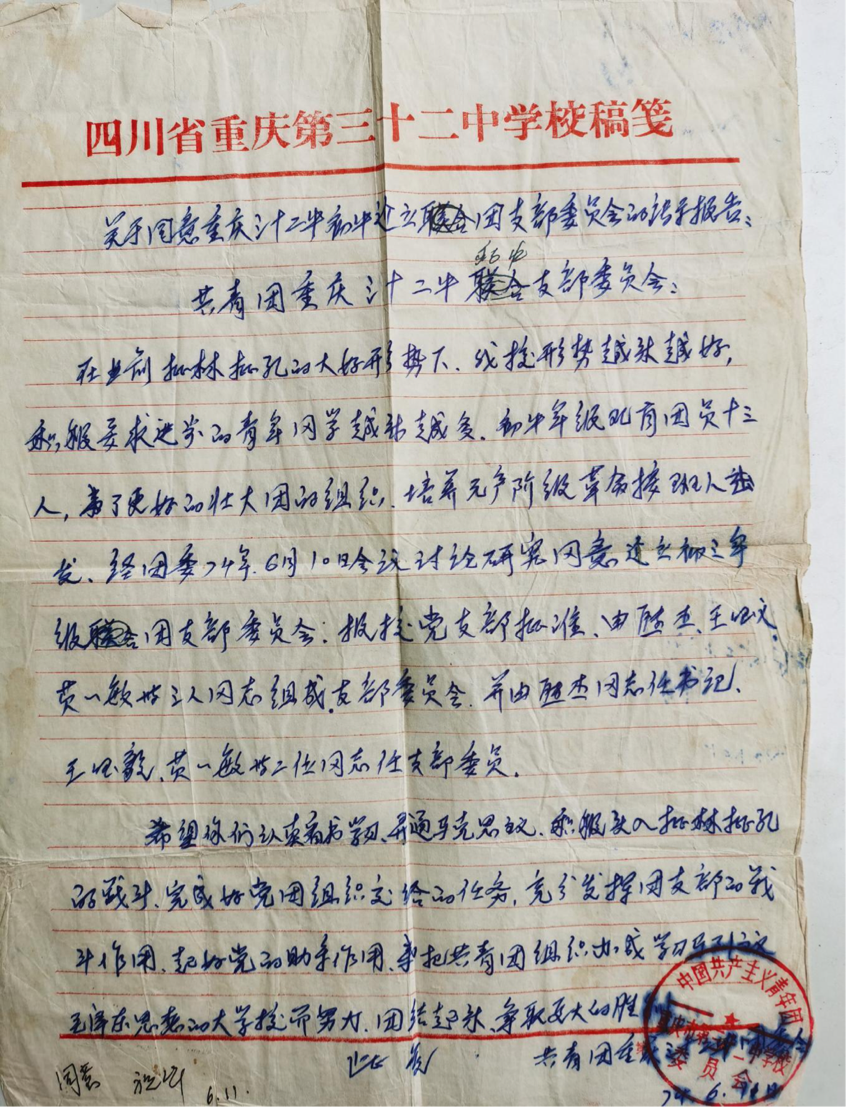 四川省重庆第三十二中学校稿笺
关于同意重庆卅二中初中建立团支部委员会的请示报告:
初中
共青团重庆卅二中支部委员会:
在当前批林批孔的大好形势下、我校形势越来越好,
积极要求进步的青年同学越来越多、初中年级现有团员十三
人,为了更好的壮大团的组织、培养无产阶级革命接班人出
发、经团委74年.6月10日会议讨论研究同意建立初三年
级团支部委员会;报校党支部批准、由 杰、王 、
黄小敏等三人同志组成支部委员会.并由 杰同志任书记、
王 毅、黄小敏等二位同志任支部委员.
希望你们认真看书学习、弄通马克思主义、积极投入批林批孔
的战斗、完成好党团组织交给的任务,充分发挥团支部的战
斗作用、起好党的助手作用、要把共青团组织办成学习马列主义
毛泽东思想的大学校而努力、团结起来、争取更大的胜利
此致
共青团重庆
74. 6.
同意 6.11.
中国共产主义青年团
委员会